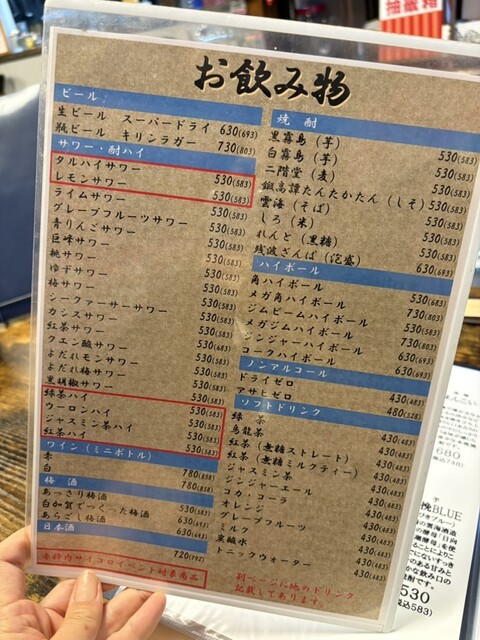 お飲み物
ビール
生ビール スーパードライ 630(693)
瓶ビール キリンラガー 730(803)
サワー・酎ハイ
タルハイサワー 530(583)
レモンサワー 530(583)
ライムサワー 530(583)
グレープフルーツサワー 530(583)
青りんごサワー 530(583)
巨峰サワー 530(583)
桃サワー 530(583)
ゆずサワー 530(583)
梅サワー 530(583)
シークァーサーサワー 530(583)
カシスサワー 530(583)
紅茶サワー 530(583)
クエン酸サワー
よだれモンサワー 530(583)
よだれ梅サワー 530(583)
黒胡椒サワー 530(583)
緑茶ハイ 530(583)
ウーロンハイ 530(583)
ジャスミン茶ハイ 530(583)
紅茶ハイ 530(583)
ワイン(ミニボトル)
赤 780(858)
白 780(858)
梅酒
あっさり梅酒 530(583)
白加賀でつくった梅酒 630(693)
あらごし梅酒 630(693)
日本酒
720(792)
赤枠内サイコロイベント対象商品
焼酎
黒霧島(芋) 530(583)
白霧島(芋) 530(583)
二階堂(麦) 530(583)
鍛高譚たんたかたん(しそ) 530(583)
雲海(そば) 530(583)
しろ(米) 530(583)
れんと(黒糖) 530(583)
残波ざんぱ(泡盛) 630(693)
ハイボール
角ハイボール 530(583)
メガ角ハイボール 730(803)
ジムビームハイボール 530(583)
メガジムハイボール 730(803)
ジンジャーハイボール 630(693)
コークハイボール 630(693)
ノンアルコール
ドライゼロ 430(483)
アサヒゼロ 480(528)
ソフトドリンク
緑茶 430(483)
烏龍茶 430(483)
紅茶(無糖ストレート) 430(483)
紅茶(無糖ミルクティー) 430(483)
ジャスミン茶 430(483)
ジンジャーエール 430(483)
コカ・コーラ 430(483)
オレンジ 430(483)
グレープフルーツ 430(483)
ミルク 430(483)
炭酸水 430(483)
トニックウォーター 430(483)
別ページに地のドリンク
記載してあります。
抽籤箱
680
BLUE
530
税込583)